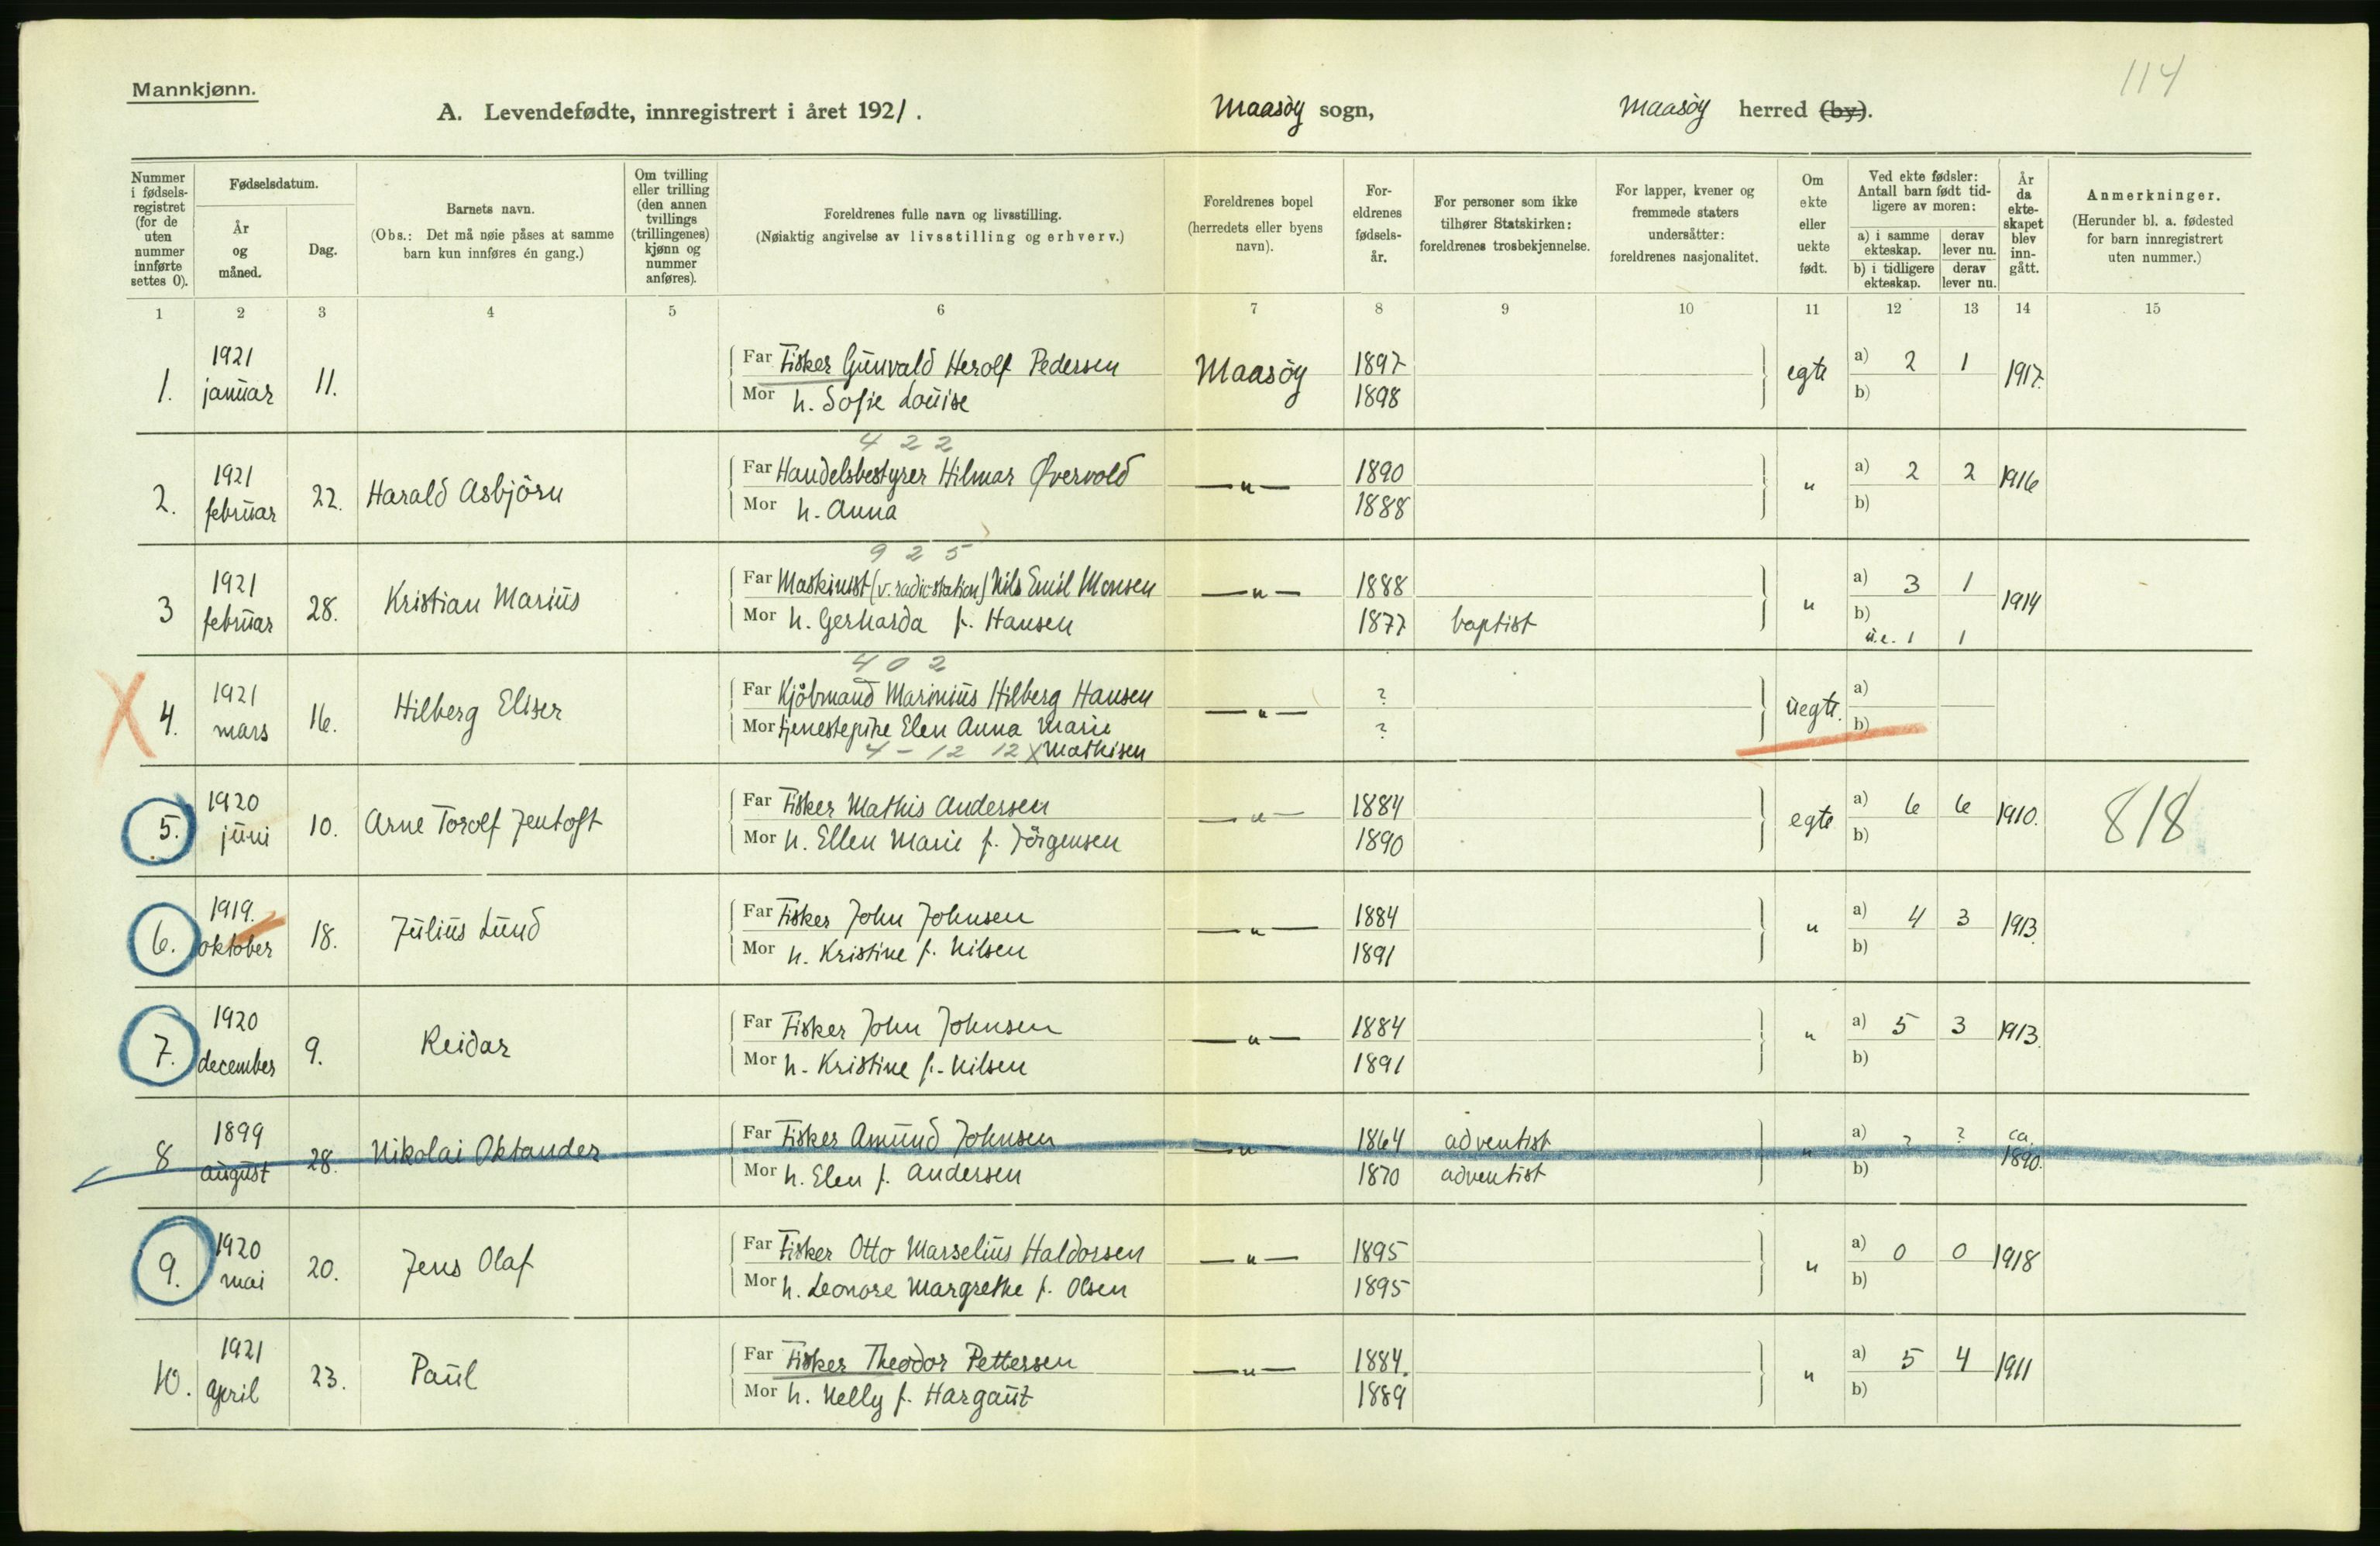 114
Mannkjønn.
A. Levendefødte, innregistrert i året 1921. Maasöy sogn, Maasöy herred (by).
Nummer i fødsels-registret (for de uten nummer innførte settes 0).
Fødselsdatum.
År og måned.
Dag.
Barnets navn.
(Obs.: Det må nøie påses at samme barn kun innføres én gang.)
Om tvilling eller trilling (den annen tvillings (trillingenes) kjønn og nummer anføres).
Foreldrenes fulle navn og livsstilling.
(Nøiaktig angivelse av livsstilling og erhverv.)
Foreldrenes bopel
(herredets eller byens navn).
For-eldrenes fødsels-år.
For personer som ikke tilhører Statskirken: foreldrenes trosbekjennelse.
For lapper, kvener og fremmede staters undersåtter: foreldrenes nasjonalitet.
Om ekte eller uekte født.
Ved ekte fødsler: Antall barn født tid-ligere av moren:
a) i samme ekteskap. derav lever nu.
b) i tidligere ekteskap. derav lever nu.
År da ekte-skapet blev inn-gått.
Anmerkninger.
(Herunder bl. a. fødested for barn innregistrert uten nummer.)
1 2 3 4 5 6 7 8 9 10 11 12 13 14 15
1. 1921 januar 11. Far Fisker Gunvald Herolf Pedersen Maasöy 1897 egte a) 2 1 1917.
Mor h. Sofie Louise 1898 b)
4 2 2
2. 1921 februar 22. Harald Asbjörn Far Handelsbestyrer Hilmar Øvervold —"— 1890 " a) 2 2 1916
Mor h. Anna 1888 b)
9 2 5
3 1921 februar 28. Kristian Marius Far Maskinist (v. radiostation) Nils Emil Monsen —"— 1888 " a) 3 1 1914
Mor h. Gerharda f. Hansen 1877 baptist b)
u.e. 1 1
4 0 2
4. 1921 mars 16. Hilberg Eliser Far Kjöbmand Marinius Hilberg Hansen —"— ? uegte. a)
Mor tjenestepike Elen Anna Marie ? b)
4 - 12 12 X Mathisen
5. 1920 juni 10. Arne Torolf Jentoft Far Fisker Mathis Andersen —"— 1884 egte a) 6 6 1910. 818
Mor h. Ellen Marie f. Jörgensen 1890 b)
6. 1919. oktober 18. Julius Lund Far Fisker John Johnsen —"— 1884 " a) 4 3 1913.
Mor h. Kristine f. Nilsen 1891 b)
7. 1920 december 9. Reidar Far Fisker John Johnsen —"— 1884 " a) 5 3 1913.
Mor h. Kristine f. Nilsen 1891 b)
8 1899 august 28. Nikolai Oktander Far Fisker Asmund Johnsen —"— 1864 adventist " a) ? ? ca. 1890.
Mor h. Elen f. Andersen 1870 adventist b)
9. 1920 mai 20. Jens Olaf Far Fisker Otto Marselius Haldorsen —"— 1895 " a) 0 0 1918
Mor h. Leonore Margrethe f. Olsen 1895 b)
10. 1921 April 23. Paul Far Fisker Theodor Pettersen —"— 1884. " a) 5 4 1911
Mor h. Nelly f. Hargaut 1889 b)